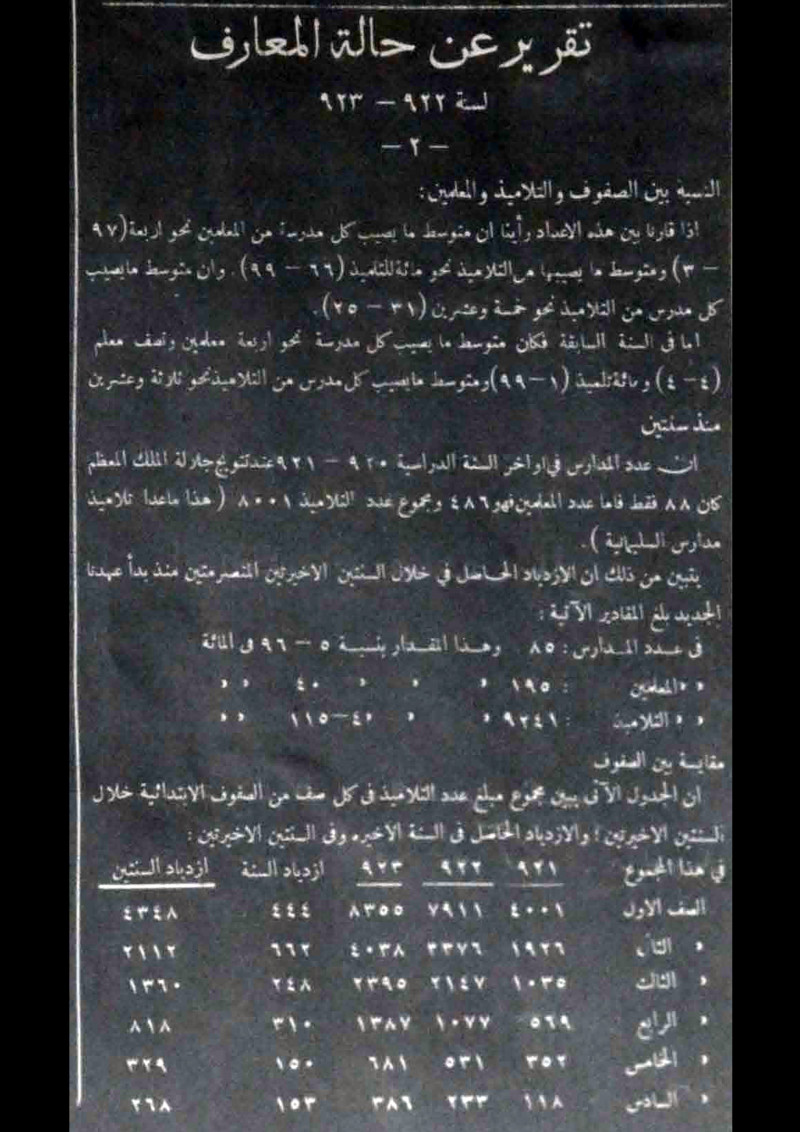 تقرير عن حالة المعارف
لسنة ٩٢٢ – ٩٢٣
– ٢ –
النسبة بين الصفوف والتلاميذ والمعلمين:
اذا قارنا بين هذه الاعداد رأينا ان متوسط ما يصيب كل مدرسة من المعلمين نحو اربعة (٩٧
– ٣) ومتوسط ما يصيبها من التلاميذ نحو مائة للتلميذ (٦٦ – ٩٩). وان متوسط ما يصيب
كل مدرس من التلاميذ نحو خمسة وعشرين (٣١ – ٢٥).
اما فى السنة السابقة فكان متوسط ما يصيب كل مدرسة نحو اربعة معلمين ونصف معلم
(٤ – ٤) ومائة تلميذ (١ – ٩٩) ومتوسط ما يصيب كل مدرس من التلاميذ نحو ثلاثة وعشرين
منذ سنتين
ان عدد المدارس في اواخر السنة الدراسية ٩٢٠ – ٩٢١ عند تتويج جلالة الملك المعظم
كان ٨٨ فقط فاما عدد المعلمين فهو ٤٨٦ ومجموع عدد التلاميذ ٨٠٠١ ( هذا ماعدا تلاميذ
مدارس السليمانية ).
يتبين من ذلك ان الازدياد الحاصل في خلال السنتين الاخيرتين المنصرمتين منذ بدأ عهدنا
الجديد بلغ المقادير الآتية :
فى عدد المدارس : ٨٥ وهذا المقدار بنسبة ٥ – ٩٦ فى المائة
« « المعلمين : ١٩٥ « « « ٤٠ « «
« « التلاميذ : ٩٢٤١ « « « ٤٠–١١٥ « «
مقايسة بين الصفوف
ان الجدول الآتى يبين مجموع مبلغ عدد التلاميذ فى كل صف من الصفوف الابتدائية خلال
السنتين الاخيرتين ؛ والازدياد الحاصل فى السنة الاخيرة وفى السنتين الاخيرتين :
في هذا المجموع ٩٢١ ٩٢٢ ٩٢٣ ازدياد السنة ازدياد السنتين
الصف الاول ٤٠٠١ ٧٩١١ ٨٣٥٥ ٤٤٤ ٤٣٤٨
« الثانى ١٩٢٦ ٣٣٧٦ ٤٠٣٨ ٦٦٢ ٢١١٢
« الثالث ١٠٣٥ ٢١٤٧ ٢٣٩٥ ٢٤٨ ١٣٦٠
« الرابع ٥٦٩ ١٠٧٧ ١٣٨٧ ٣١٠ ٨١٨
« الخامس ٣٥٢ ٥٣١ ٦٨١ ١٥٠ ٣٢٩
« السادس ١١٨ ٢٣٣ ٣٨٦ ١٥٣ ٢٦٨